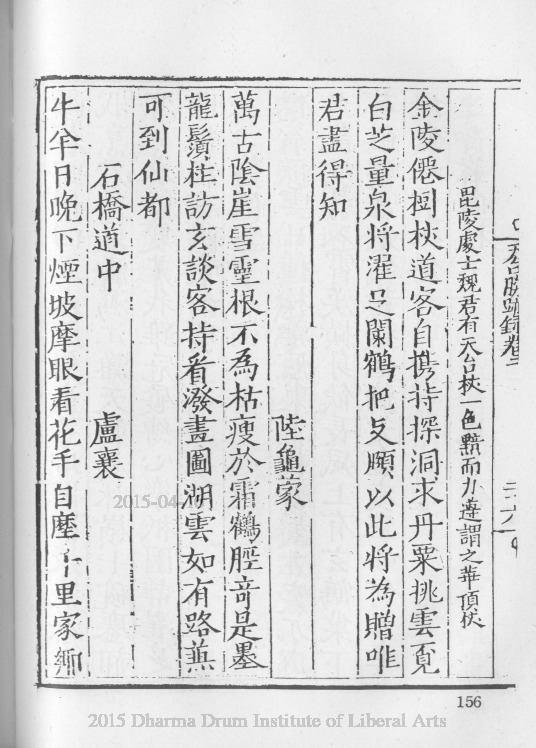 天台勝蹟錄卷二
二十六
毘陵處士魏君有天台杖一色黯而力遒謂之華頂杖
金陵僊樹杖道客自攜持探洞求丹粟挑雲覓
白芝量泉將濯足闌鶴把支頤以此將為贈唯
君盡得知
陸龜蒙
萬古陰崖雪靈根不為枯瘦於霜鶴脛奇是墨
龍鬚柱訪玄談客持看潑畫圖湖雲如有路兼
可到仙都
石橋道中
盧襄
牛羊日晚下煙坡摩眼看花手自
十里家鄉
156
2015-04
2015 Dharma Drum Institute of Liberal Arts